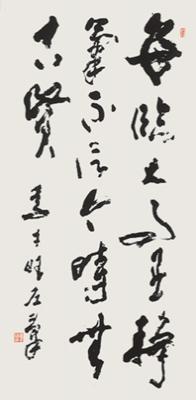 每臨大事有靜
氣不信今時無
古賢